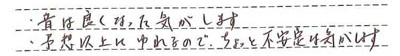 ・音は良くなった気がします
・予想以上にゆれるので、ちょっと不安定な気がします